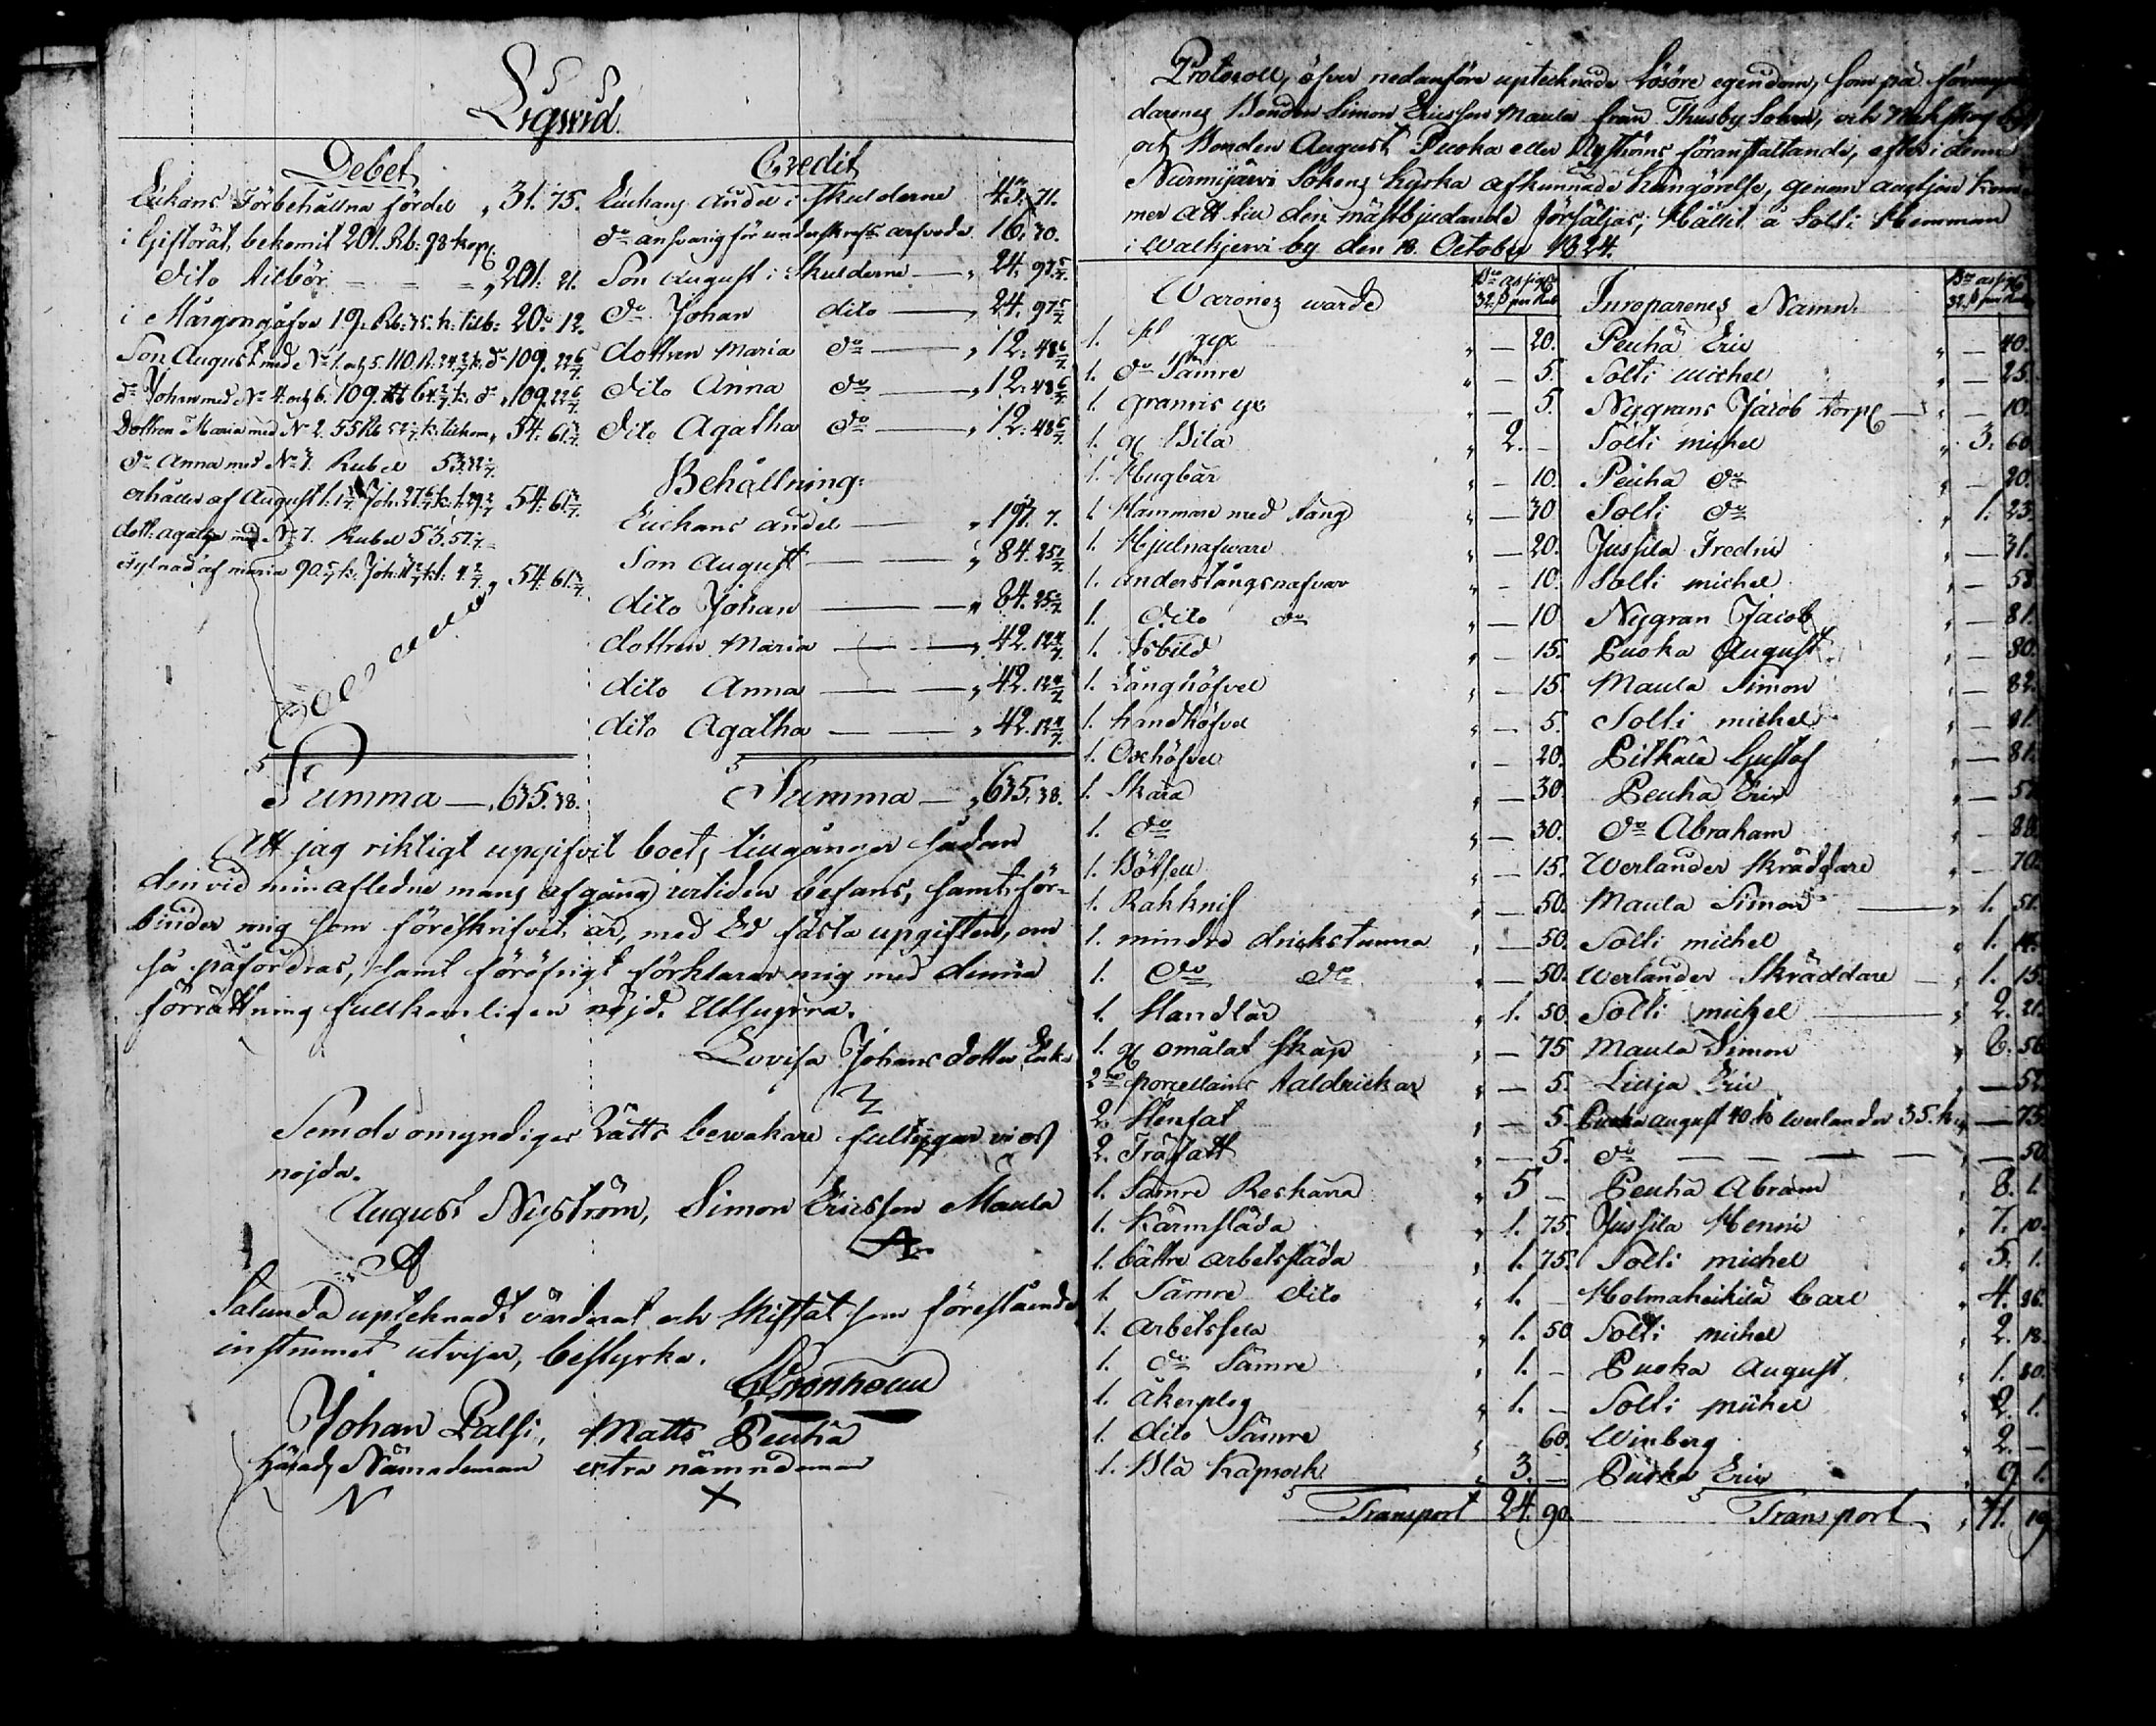 Liqwid.
Debet
Enkans Förbehållna fördel „ 31. 75.
i Giftorät, bekomit 201. Rb: 98 kop
dito tilbör = = = „ 201: 21.
i Morgongåfva 19. Rb: 75. k: tilb: 20. 12.
Son August med No 1. och 5. 110. R: 24 2/7 k: do 109. 22 6/7.
do Johan med No 4. och 6. 109. Rb 64 2/7 k: do „ 109. 22 6/7.
Dottren Maria med No 2. 55 Rb 52 k: tilkom „ 54. 61 3/7.
do Anna med No 3. Rubel 53.
erhåller af August 1. Joh: 27 54. 61 3/7.
dott: agatha med No 7. Rubel 53. 57
fylnad af maria 90. 5/7 k: Joh: „ 54. 61 3/7.
Summa — „ 635. 38.
Credit
Enkans andel i skulderne 43. 71.
do ansvarig för underskrefts arfvode 16. 30.
Son August i Skulderne — „ 24. 97 5/7.
do Johan dito — „ 24. 97 5/7.
dottren Maria do — „ 12. 48 6/7.
dito Anna do — „ 12. 48 6/7.
dito Agatha do — „ 12. 48 6/7.
Behållning:
Enkans andel — „ 197. 7.
Son August — „ 84. 25 1/7.
dito Johan — „ 84. 25 1/7.
dottren Maria — „ 42. 12 4/7.
dito Anna — „ 42. 12 4/7.
dito Agatha — „ 42. 12 4/7.
Summa — „ 635. 38.
Att jag riktigt upgifvit boets tillgångar sådan
den vid min afledne mans afgång i tiden befans, samt för-
binder mig som föreskrifvit är, med Ed fästa upgiften, om
så påfordras, samt föröfrigt förklarar mig med denna
förrättning fullkomligen nöjd. Utsupra.
Lovisa Johans dotter Enka
Som de omyndiges Rätts bewakare fullygar vi oss
nöjda.
August Nyström, Simon Ericsson Maula
Salunda uptecknadt värderat och skiftat som förestående
instrument utvisar, bestyrka.
Johan Palsi, Matts Peuhä
Härads Nämndeman extra nämndeman
N X
Protocoll, öfver nedanföre uptecknade Lösöre egendom, som på förmyn
darenes Bonden Simon Ericsson Maula från Thusby Sokn, och by
och Bonden August Puoka eller Nyströms föranstaltande, efter i denna
Nurmijärvi Sokens Kyrka afkunnade kungörelse, genom auction kom-
mer att till den mästbjudande försäljas; Hållit å Solti Hemman
i Walkjervi by den 18. October 1824.
Warones wärde Bco assig 32. ß per Rub Inroparenes Namn. Bco assig 32. ß per Rub
1. st yx „ — 20. Peuhä Eric „ — 40.
1. do Sämre „ — 5. Solti michel „ — 25.
1. gramis yx „ — 5. Nygrans Jacob torp — „ — 10.
1. Bila „ 2. — Solti michel „ 3. 60
1. Hugbår „ — 10. Peuhä do „ — 20.
1. Hammare med tång „ — 30 Solti do „ 1. 23.
1. Hjulnafware „ — 20. Jussila Fredric „ — 31.
1. anderstångsnafvar „ — 10. Solti michel „ — 58
1. dito do „ — 10 Nygran Jacob „ — 81.
1. Isbild „ — 15. Puoka August „ — 80.
1. Långhöfvel „ — 15. Maula Simon „ — 82.
1. handhöfvel „ — 5. Solti michel „ — 81.
1. Oxhöfvel „ — 20. Pitkälä Gustaf „ — 81.
1. Skära „ — 30. Peuhä Eric „ — 57.
1. do „ — 30. do Abraham „ — 80.
1. „ — 15. Werlander Skräddare „ — 70.
1. Rakknif „ — 50. Maula Simon — „ 1. 51.
1. mindre drickstunna „ — 50. Solti michel „ 1. 14.
1. do do „ — 50. Werlander Skräddare — „ 1. 15.
1. Handlår „ 1. 50. Solti michel — „ 2. 21.
1. omålat Skåp „ — 75 Maula Simon „ 6. 56
2 porcellains taldrickar „ — 5. Lilja Eric „ — 52.
2. Stenfat „ — 5. Puoka August 40. k Werlander 35. k „ — 75.
2. Träfatt „ — 5. do — — — „ — 50.
1. Sämre Reskärra „ 5 — Peuhä Abram „ 8. 1.
1. Kärmsläda „ 1. 75. Jussila Henric „ 7. 10.
1. bättre arbetssläda „ 1. 75. Solti michel „ 5. 1.
1 Sämre dito „ 1. — Holmaheikilä Carl „ 4. 86.
1. arbetssela „ 1. 50 Solti michel „ 2. 18.
1. do Sämre „ 1. — Puoka August. „ 1. 80.
1. åkerplog „ 1. — Solti michel „ 2. 1.
1. dito Sämre „ 60. Winberg „ 2. —
1. Blå Kaprock „ 3. — Puoka Eric „ 9 1.
Transport 24. 90. Transport „ 71. 19